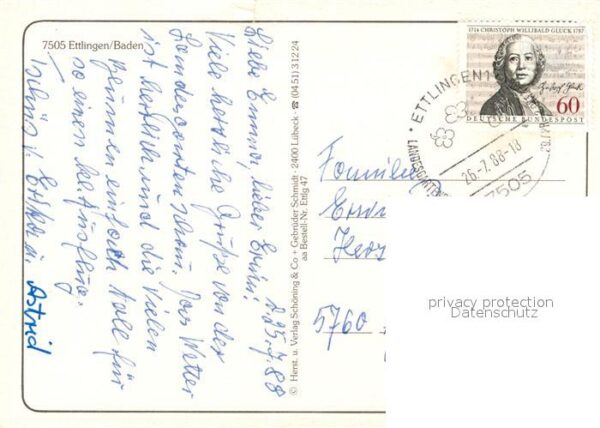 7505 Ettlingen/Baden
d. 25.7.88
Liebe Emmi, lieber Erwin!
Viele herzliche Grüße von der
Landesgartenschau. Das Wetter
ist herrlich und die vielen
Blumen einfach toll für
so einen Ausflug.
Tschüß Erika u. Astrid
© Herst. u. Verlag Schöning & Co + Gebrüder Schmidt · 2400 Lübeck · ☎ (0451) 31224
aa Bestell-Nr. Etlg 47
1714 CHRISTOPH WILLIBALD GLUCK 1787
60
DEUTSCHE BUNDESPOST
ETTLINGEN 1
26.-7.88-18
7505
Familie
Erwin
Herz
5760
privacy protection
Datenschutz